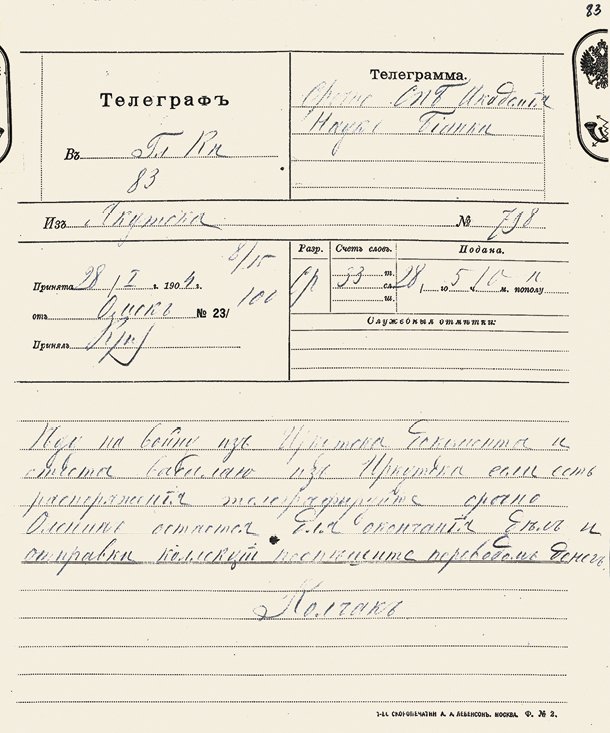 83
Телеграфъ
Телеграмма.
Срочно СПБ Академiя
Наукъ Бiанки
Въ Гл Кн
83
Изъ Якутска № 798
8/15
Принята 28/I г. 1904 г.
100
отъ Омскъ № 23/
Принялъ
Разр. Счетъ словъ. Подана.
Ср 53 т. сл. ш. 28/ го 5 ч 10 м. пополу п
Служебныя отмѣтки:
Иду на войну изъ Иркутска документы и
отчета высылаю изъ Иркутска если есть
распоряженiя телеграфируйте срочно
Оленинъ остается для окончанiя дѣлъ и
отправки коллекцiй поспѣшите переводомъ денегъ
Колчакъ
Т-ва СКОРОПЕЧАТНИ А. А. ЛЕВЕНСОНЪ. МОСКВА. Ф. № 2.